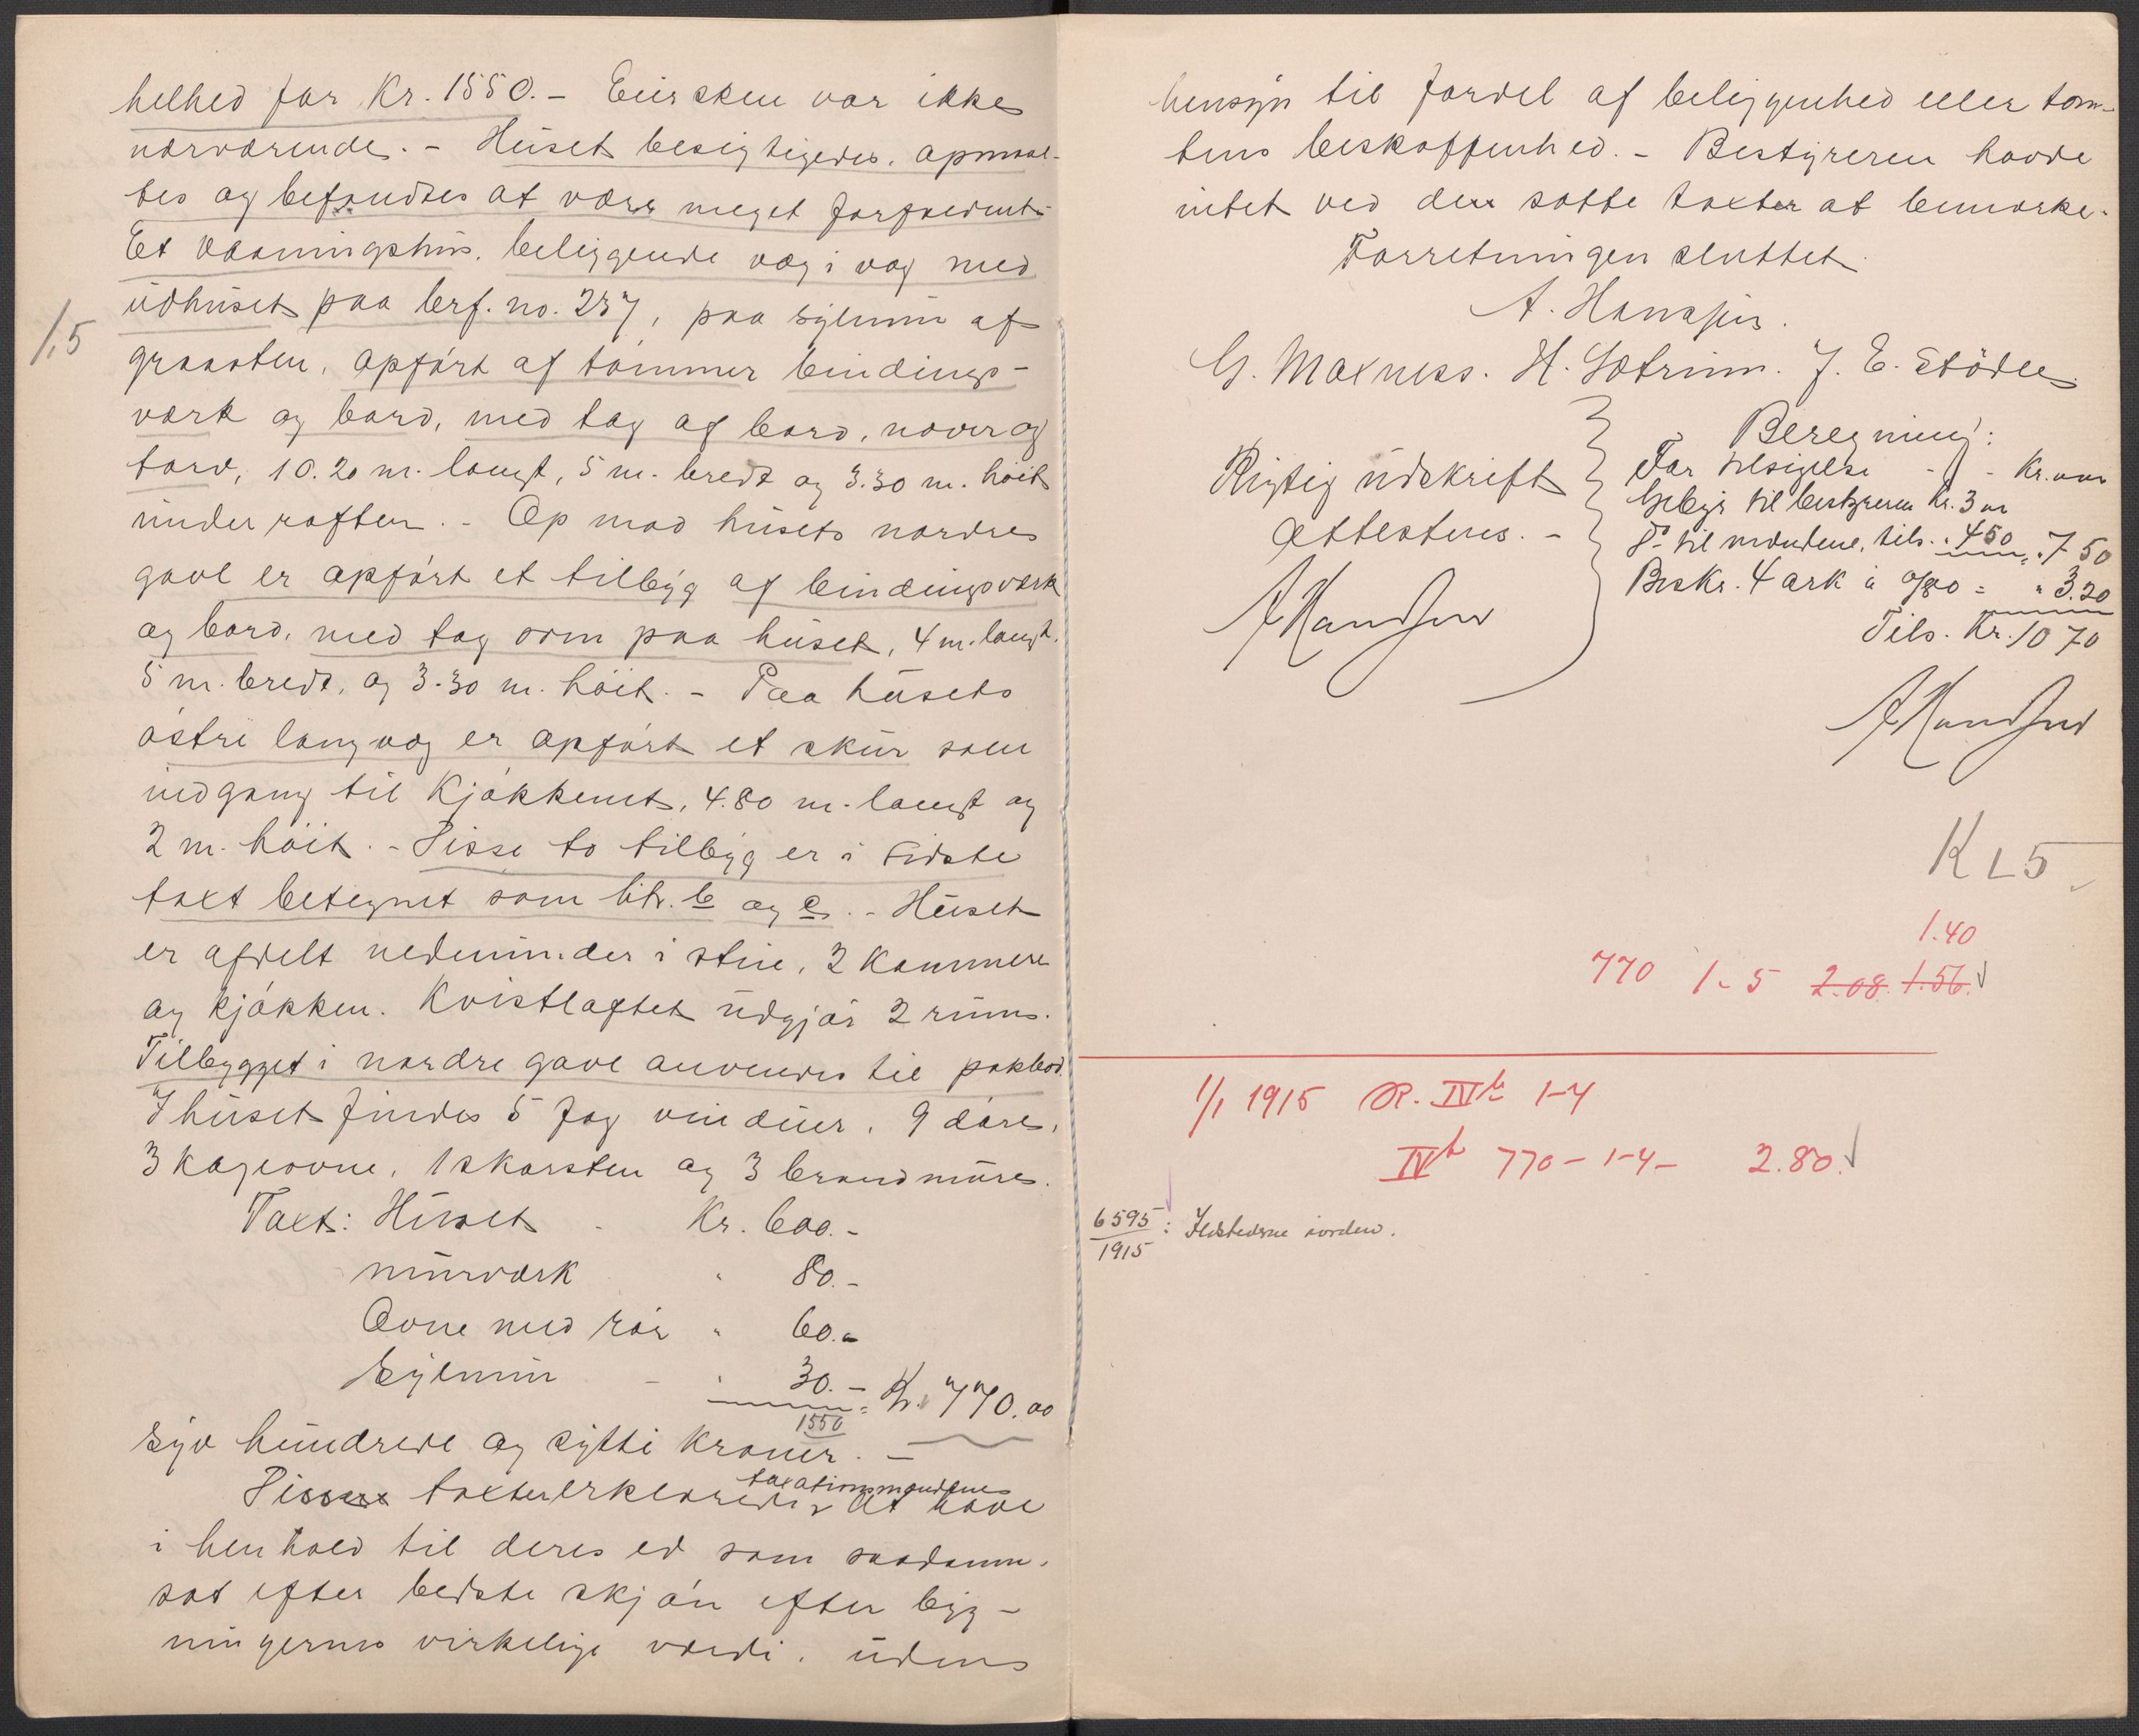 helhed for Kr. 1550.- Eiersken var ikke
nærværende. - Huset besigtigedes, opmaal-
tes og befandtes at være meget forfaldent.
Et vaaningshus, beliggende væg i væg med
udhuset paa brf. no. 237, paa sylmur af
1,5
graasten, opført af tømmer bindings-
værk og bord, med tag af bord, næver og
torv, 10.20 m. langt, 5 m. bredt og 3.30 m. høit
under raften. - Op mod husets nordre
gavl er opført et tilbyg af bindingsværk
og bord, med tag som paa huset, 4 m. langt,
5 m. bredt, og 3.30 m. høit. - Paa husets
østre langvæg er opført et skur som
indgang til kjøkkenet, 4.80 m. langt og
2 m. høit. - Disse to tilbyg er i sidste
taxt betegnet som litr. b og c. - Huset
er afdelt nedenunder i stue, 2 kammere
og kjøkken. Kvistloftet udgjør 2 rum.
Tilbygget i nordre gavl anvendes til pakbod.
I huset findes 5 fag vinduer, 9 døre,
3 kageovne, 1 skorsten og 3 brandmure.
Taxt: Huset - Kr. 600.-
murværk " 80.-
Ovne med rør " 60.-
Sylmur - " 30.- = Kr. 770.00
1550
syv hundrede og sytti kroner. -
taxationsmændene
Disse taxter erklærede at have
i henhold til deres ed som saadanne,
sat efter bedste skjøn efter byg-
ningernes virkelige værdi, uden
hensyn til fordel af beliggenhed eller tom-
tens beskaffenhed. - Bestyreren havde
intet ved den satte taxter at bemærke.
Forretningen sluttet.
A. Hansen.
G. Maxness. H. Sotrinn. J. E. Stödle
Rigtig udskrift
attesteres. -
AHansen
Beregning:
For tilsigelse - - Kr.
Gebyr til bestyreren Kr. 3
Do til mændene, tils. " 4 50 = " 7 50
Beskr. 4 ark à 0/80 = " 3.20
Tils. Kr. 10 70
AHansen
K L 5
1.40
770 1-5 2.08 1.56
1/1 1915 R. IVb 1-4
IVb 770 - 1-4 - 2.80
6595/1915 : Ildstederne iorden.